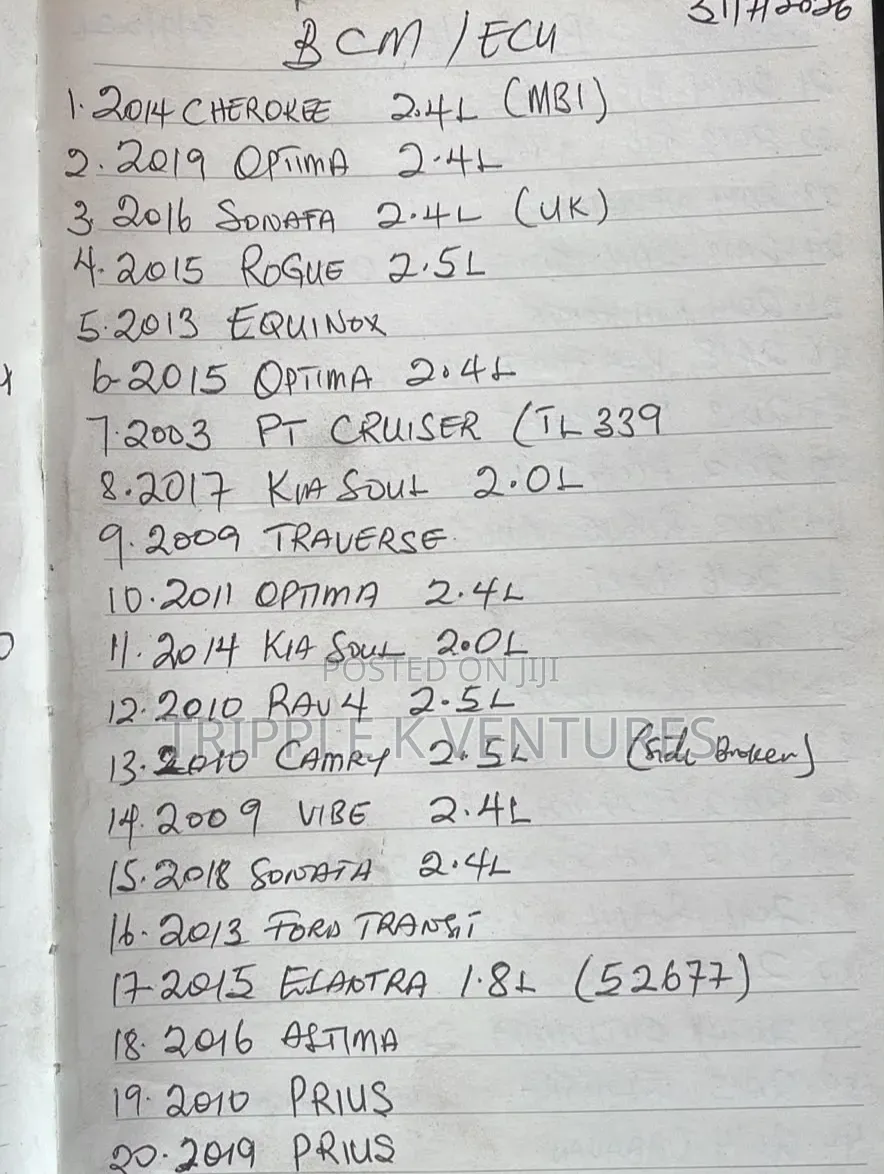 31/7/2026
BCM / ECU
1. 2014 CHEROKEE 2.4L (MB1)
2. 2019 OPTIMA 2.4L
3. 2016 SONATA 2.4L (UK)
4. 2015 ROGUE 2.5L
5. 2013 EQUINOX
6- 2015 OPTIMA 2.4L
7. 2003 PT CRUISER (TL 339
8. 2017 KIA SOUL 2.0L
9. 2009 TRAVERSE.
10. 2011 OPTIMA 2.4L
11. 2014 KIA SOUL 2.0L
POSTED ON JIJI
12. 2010 RAV4 2.5L
TRIPPLE K VENTURES
13. 2010 CAMRY 2.5L (Side Broken)
14. 2009 VIBE 2.4L
15. 2018 SONATA 2.4L
16. 2013 FORD TRANSIT
17- 2015 ELANTRA 1.8L (52677)
18. 2016 ALTIMA
19. 2010 PRIUS
20. 2019 PRIUS